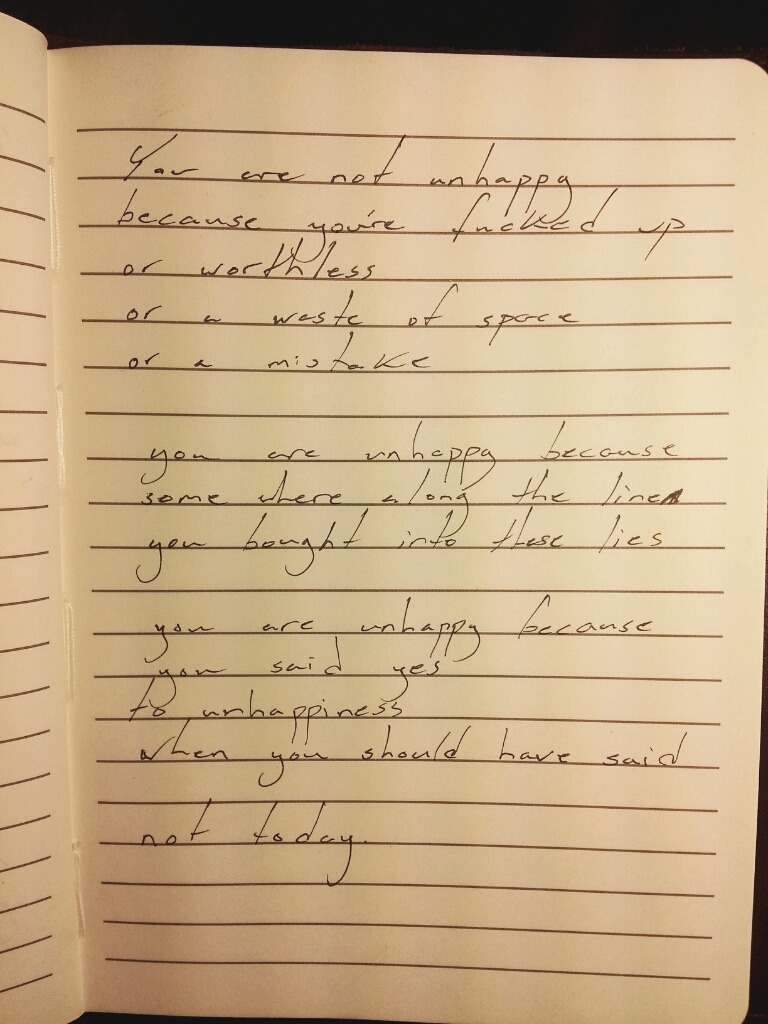 You are not unhappy
because you're fucked up
or worthless
or a waste of space
or a mistake
you are unhappy because
some where along the line
you bought into these lies
you are unhappy because
you said yes
to unhappiness
when you should have said
not today.